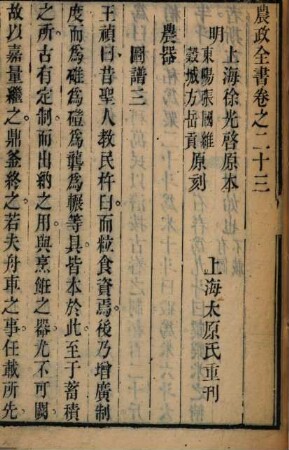 農政全書卷之二十三
上海徐光啓原本
明
東陽張國維
穀城方岳貢
原刻
上海太原氏重刊
農器
圖譜三
王禎曰昔聖人教民杵臼而粒食資焉後乃增廣制
度而為碓為磑為礱為輾等具皆本於此至于蓄積
之所古有定制而出納之用與烹飪之器尤不可闕
故以嘉量繼之鼎釜終之若夫舟車之事任載所先